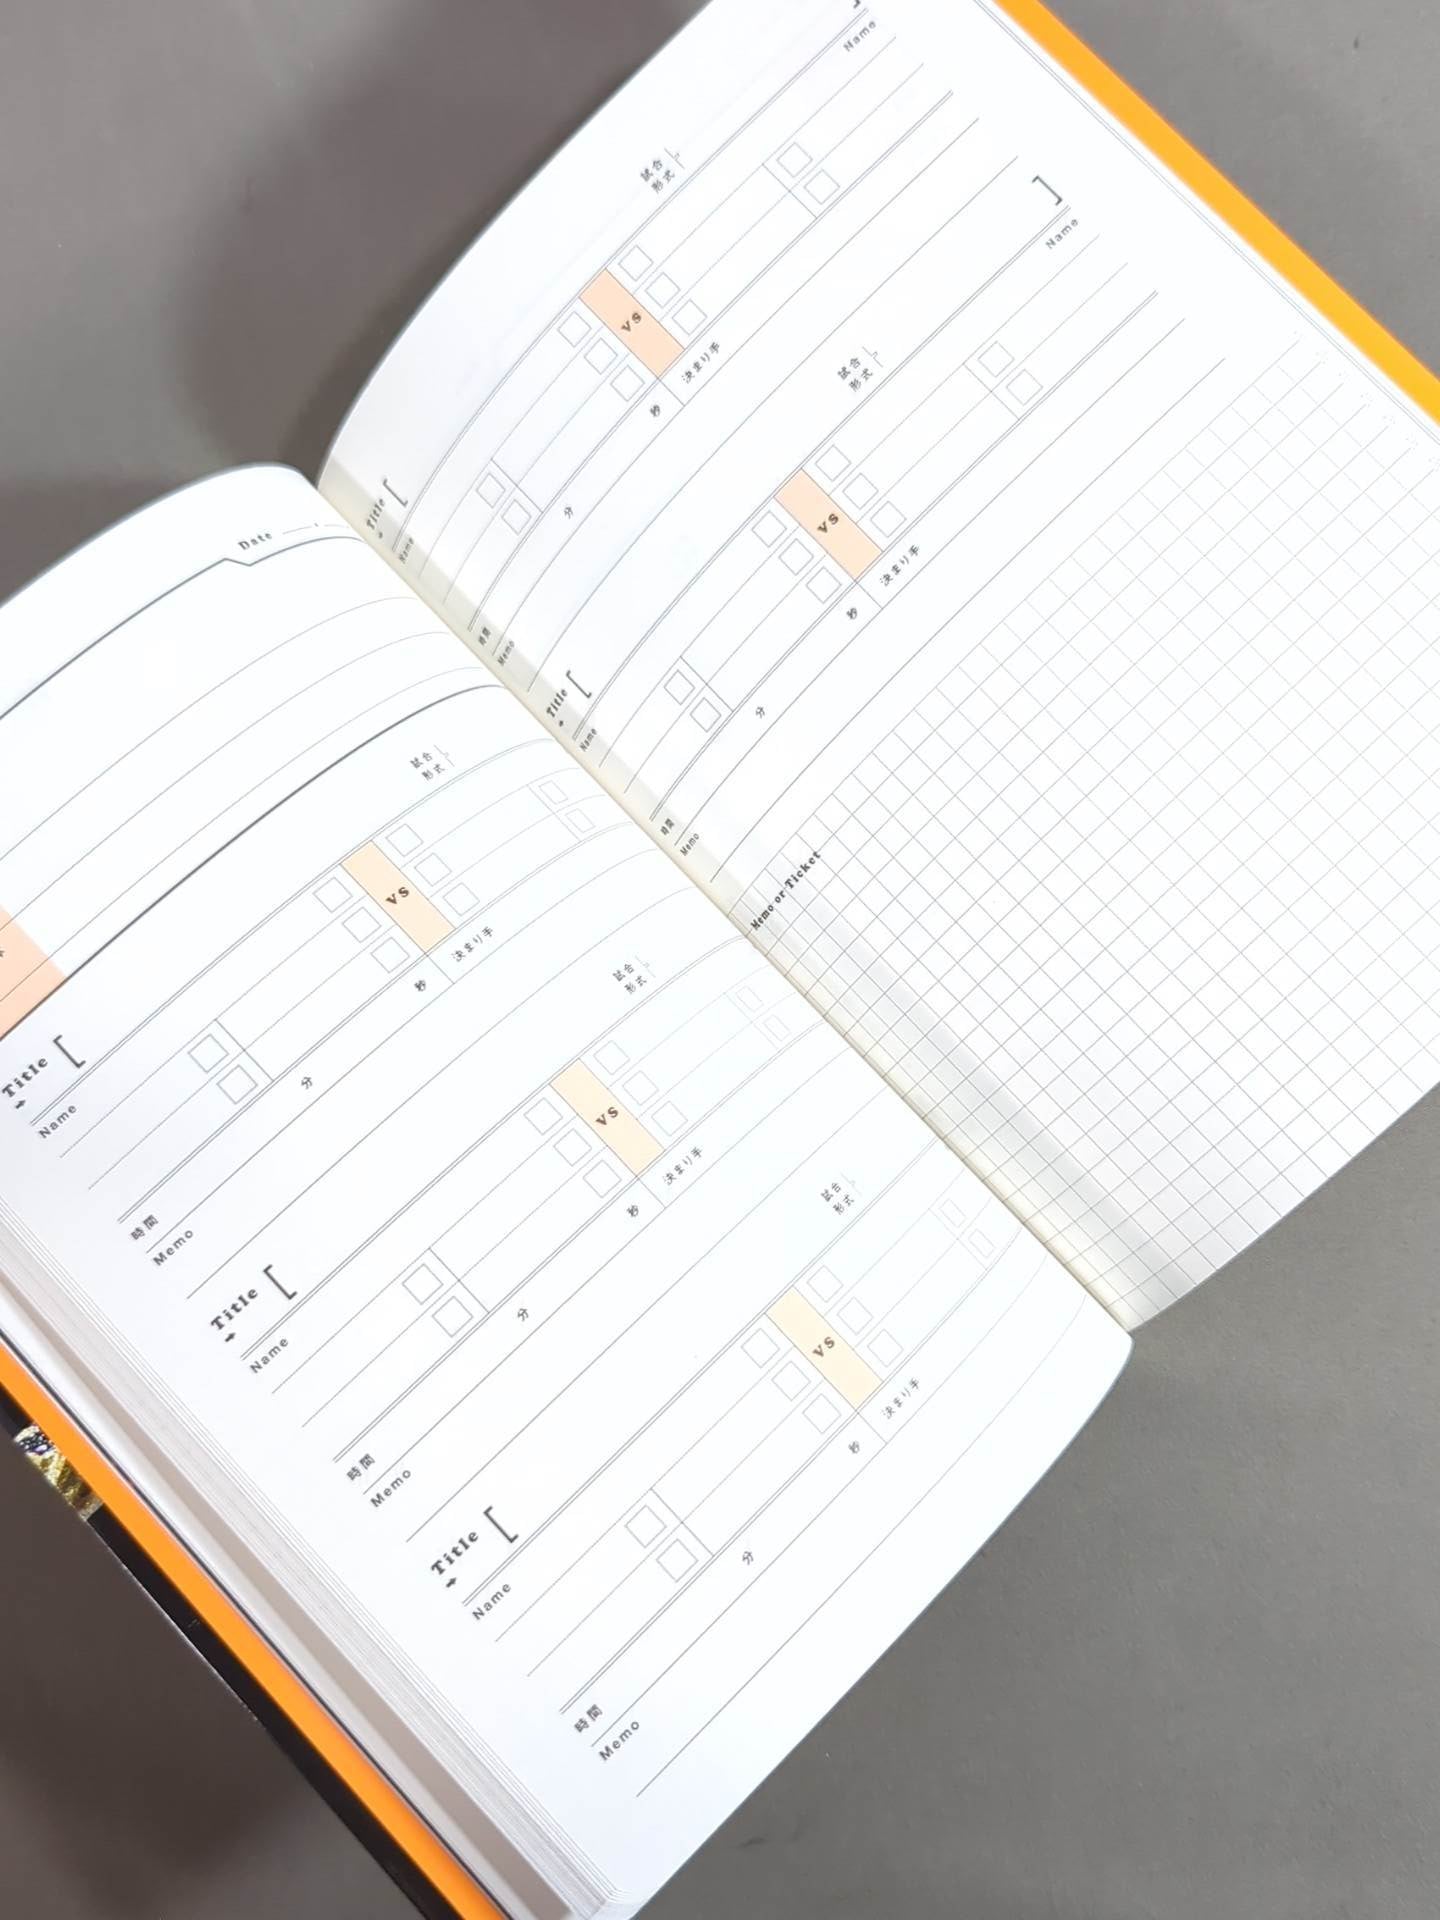 Date
Title [
試合
形式
Name
VS
時間 分 秒 決まり手
Memo
Title [
試合
形式
Name
VS
時間 分 秒 決まり手
Memo
Title [
試合
形式
Name
VS
時間 分 秒 決まり手
Memo
Title [ ]
試合
形式
Name Name
VS
時間 分 秒 決まり手
Memo
Title [ ]
試合
形式
Name Name
VS
時間 分 秒 決まり手
Memo
Memo or Ticket